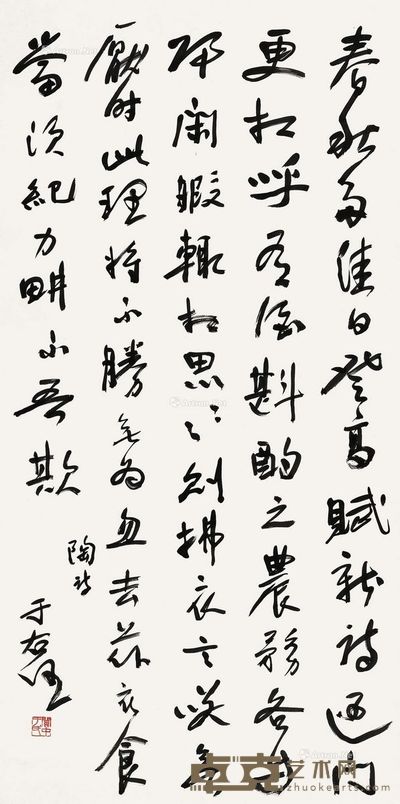 春秋多佳日登高賦新詩過門
更相呼有酒斟酌之農務各自
歸閑暇輒相思〻〻則披衣言笑無
厭時此理將不勝無為忽去茲衣食
當須紀力畊不吾欺
陶詩
于右任
關中于氏
卓克艺术网
zhuokearts.com